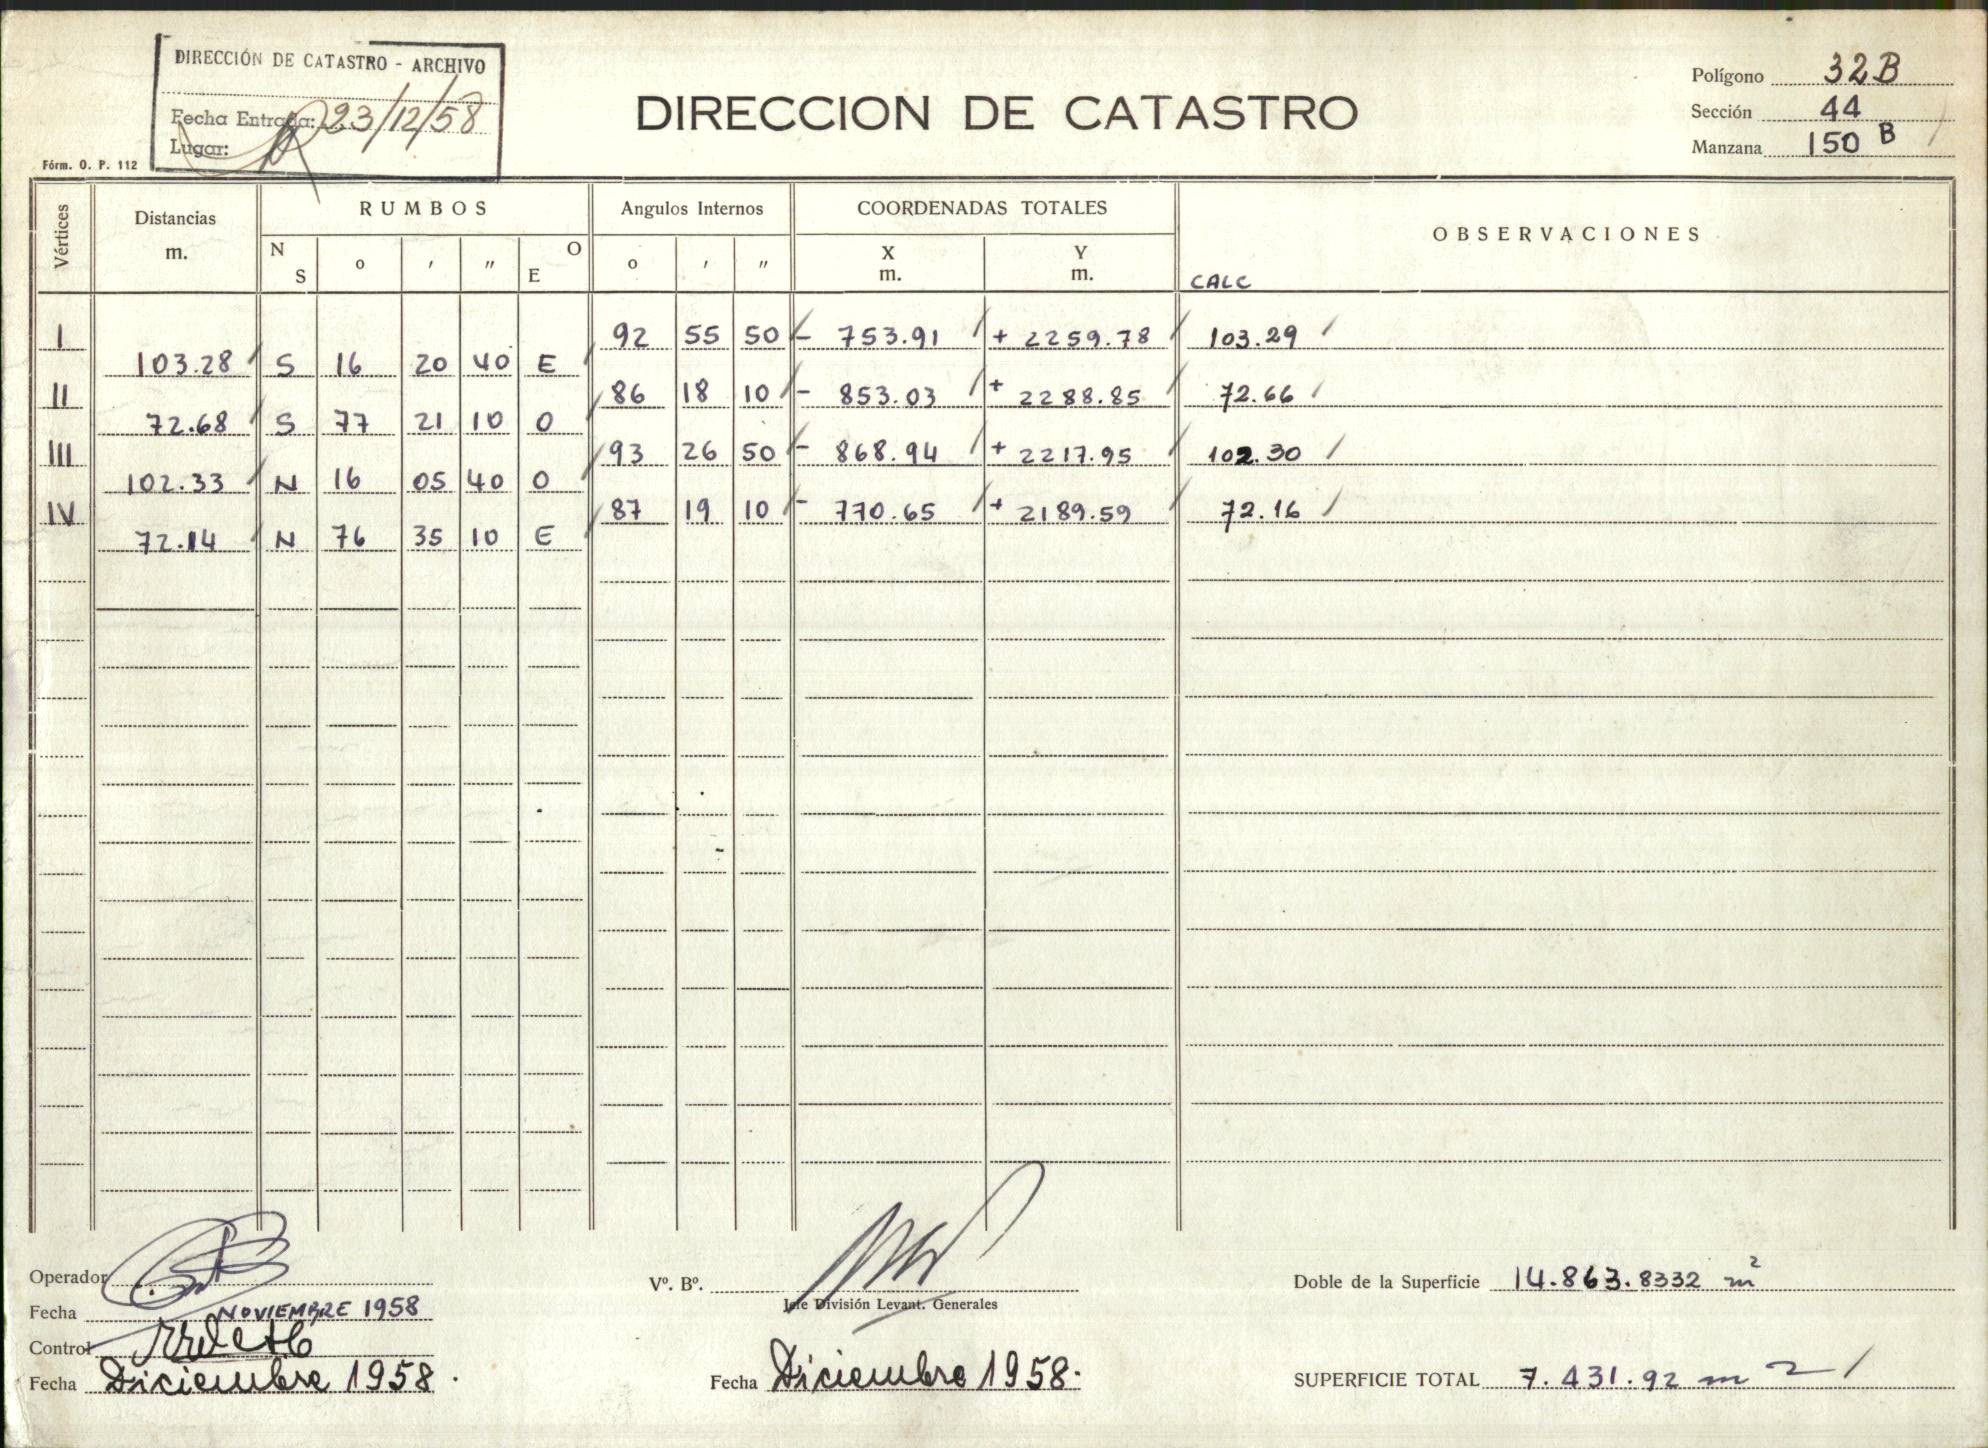 DIRECCIÓN DE CATASTRO - ARCHIVO
Fecha Entrada: 23/12/58
Lugar:
Fórm. O. P. 112
DIRECCION DE CATASTRO
Polígono 32B
Sección 44
Manzana 150 B
Vértices Distancias m. RUMBOS Angulos Internos COORDENADAS TOTALES OBSERVACIONES
N S o ' " O E o ' " X m. Y m. CALC
I 92 55 50 - 753.91 + 2259.78 103.29
103.28 S 16 20 40 E
II 86 18 10 - 853.03 + 2288.85 72.66
72.68 S 77 21 10 O
III 93 26 50 - 868.94 + 2217.95 102.30
102.33 N 16 05 40 O
IV 87 19 10 - 770.65 + 2189.59 72.16
72.14 N 76 35 10 E
Operador
Fecha NOVIEMBRE 1958
Control
Fecha Diciembre 1958.
Vº. Bº.
Jefe División Levant. Generales
Fecha Diciembre 1958.
Doble de la Superficie 14.863.8332 m²
SUPERFICIE TOTAL 7.431.92 m²